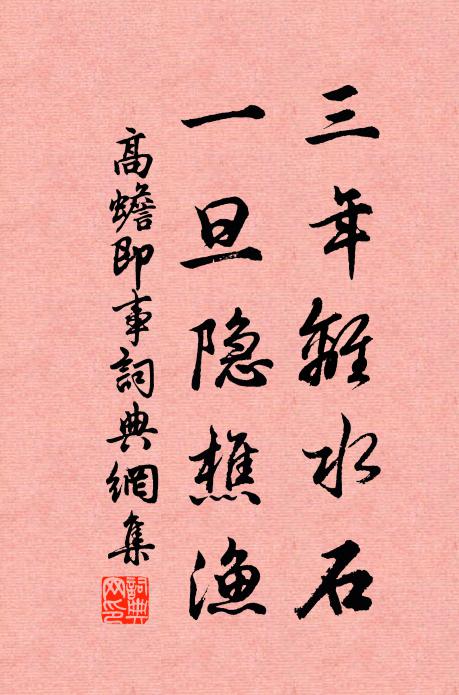 三年離水石
一旦隐樵漁
高蟾即事詞典網集
詞典網印